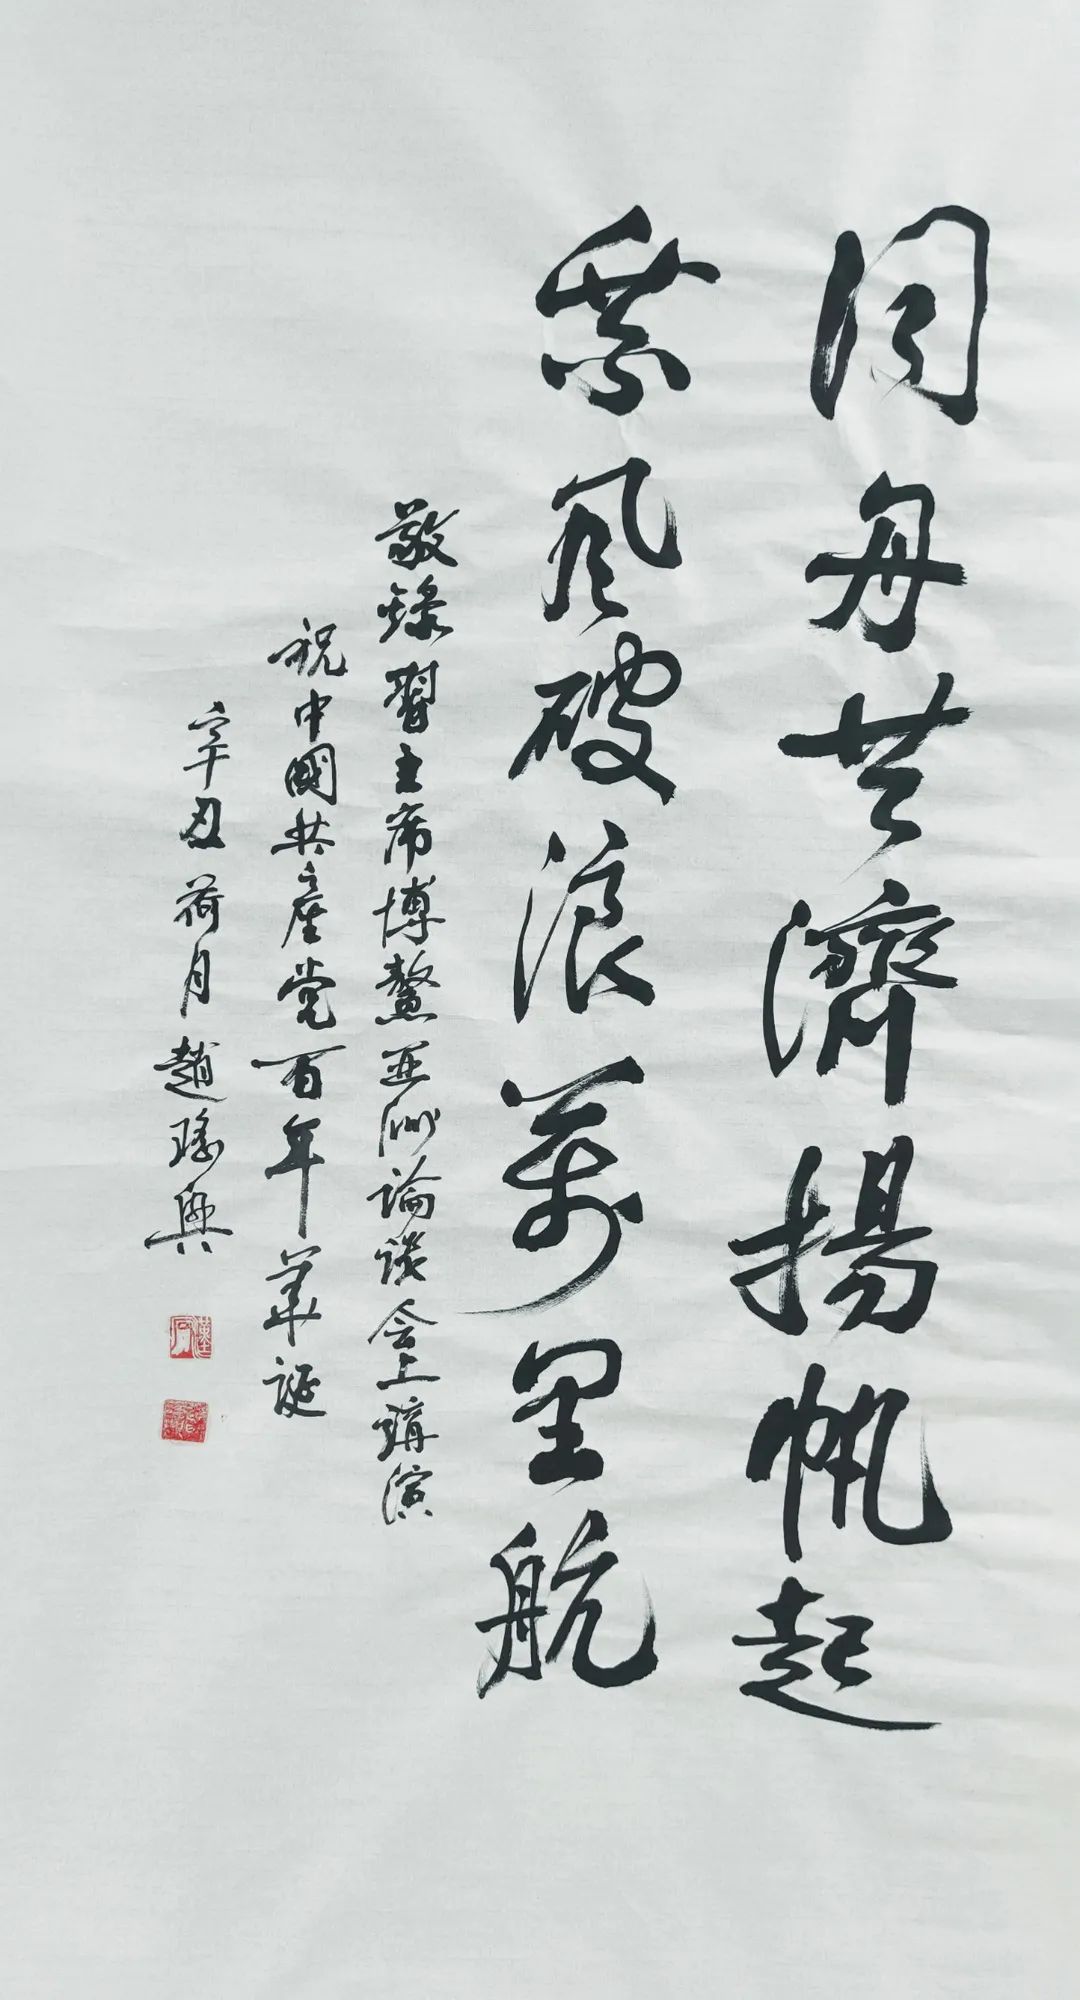 同舟共濟揚帆起
乘風破浪萬里航
敬錄習主席博鰲亚洲論談会上講演
祝中國共產党百年華诞
辛丑荷月趙瑤興